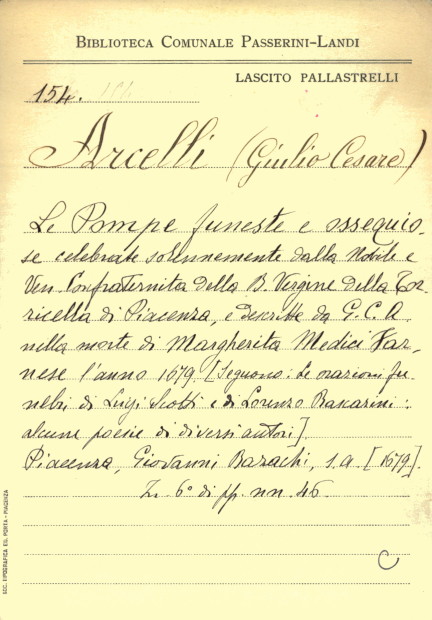 BIBLIOTECA COMUNALE PASSERINI-LANDI
LASCITO PALLASTRELLI
154.
Arcelli (Giulio Cesare)
Le Pompe funeste e ossequio-
se celebrate solennemente dalla Nobile e
Ven. Confraternita della B. Vergine della Tor-
ricella di Piacenza, e descritte da G. C. A.
nella morte di Margherita Medici Far-
nese l'anno 1679. [Seguono: Le orazioni fu-
nebri di Luigi Scotti e di Lorenzo Bascarini:
alcune poesie di diversi autori].
Piacenza, Giovanni Bazachi, s. a. [1679].
In 6° di pp. nn. 46.
C
SOC. TIPOGRAFICA ED. PORTA - PIACENZA